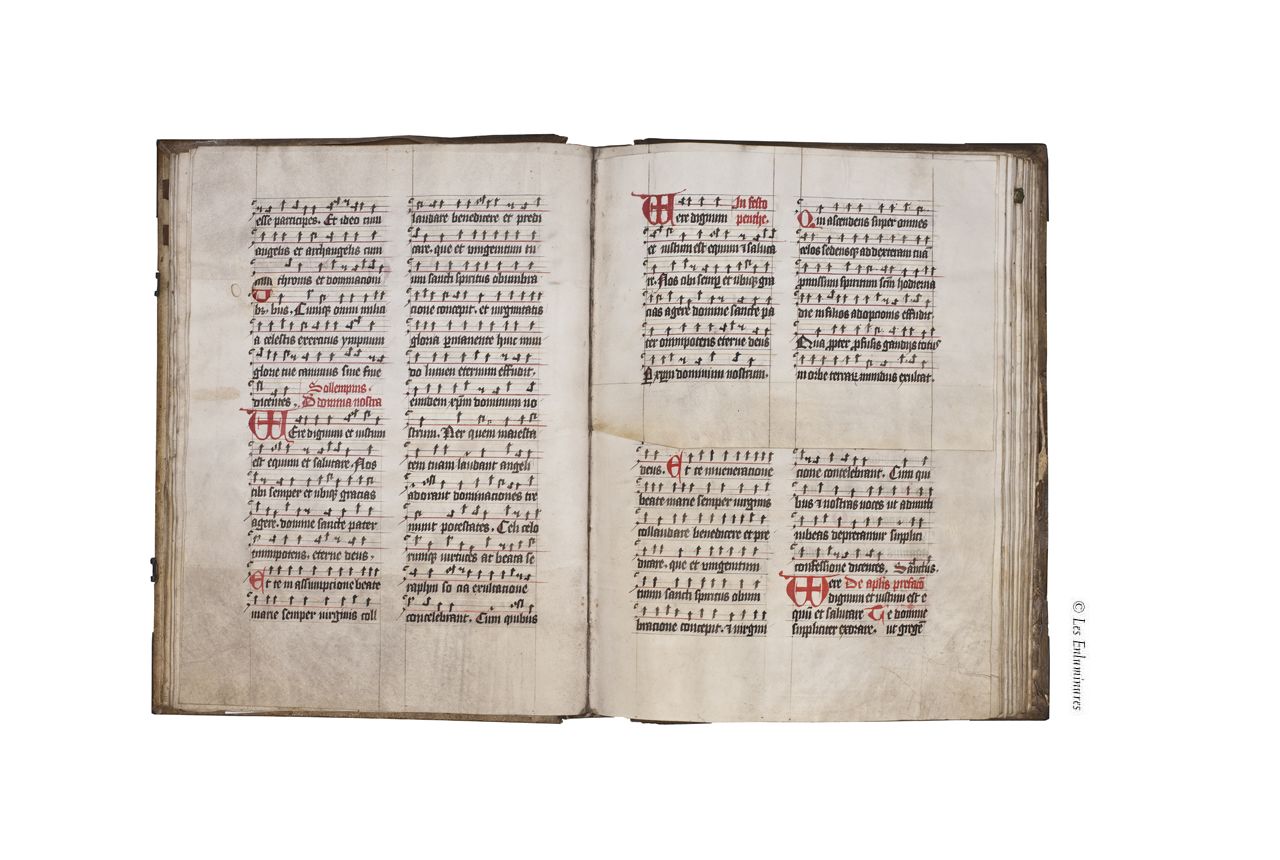 esse participes. Et ideo cum
angelis et archangelis cum
thronis et dominacioni
bus. Cumq; omni milici
a celestis exercitus ympnum
glorie tue canimus sine fine
dicentes. Sollempnis.
D domina nostra
Ere dignum et iustum
est equum et salutare. Nos
tibi semper et ubiq; gracias
agere. domine sancte pater
omnipotens. eterne deus.
Et te in assumpcione beate
marie semper virginis coll
laudare benedicere et predi
care. que et unigenitum tu
um sancti spiritus obumbra
cione concepit. et virginitatis
gloria pmanente huic mun
do lumen eternum effudit.
xpm dominum no
strum. Per quem maiesta
tem tuam laudant angeli
adorant dominaciones tre
munt potestates. Celi celo
rumq; virtutes ac beata se
raphin so cia exultacione
concelebrant. Cum quibus
Were dignum In festo
penthe.
et iustum est equum & saluta
re. Nos tibi semp et ubiq; gra
cias agere domine sancte pa
ter omnipotens eterne deus
P xpm dominum nostrum.
Qui ascendens super omnes
celos sedensq; ad dexteram tua
spiritum scm hodierna
die in filios adopcionis effudit.
Qua ppter pfusis gaudiis totus
in orbe terrar mundus exultat.
deus. Et te in veneracione
beate marie semper virginis
collaudare benedicere et pre
dicare. que et unigenitum
tuum sancti spiritus obum
bracione concepit. & virgini
cione concelebrant. Cum qui
bus & nostras voces ut admitti
iubeas deprecamur supplici
confessione dicentes. Sanctus.
Were De aplis prefacio
dignum et iustum est e
quum et salutare Te domine
suppliciter exorare. ut gregem
© Les Enluminures